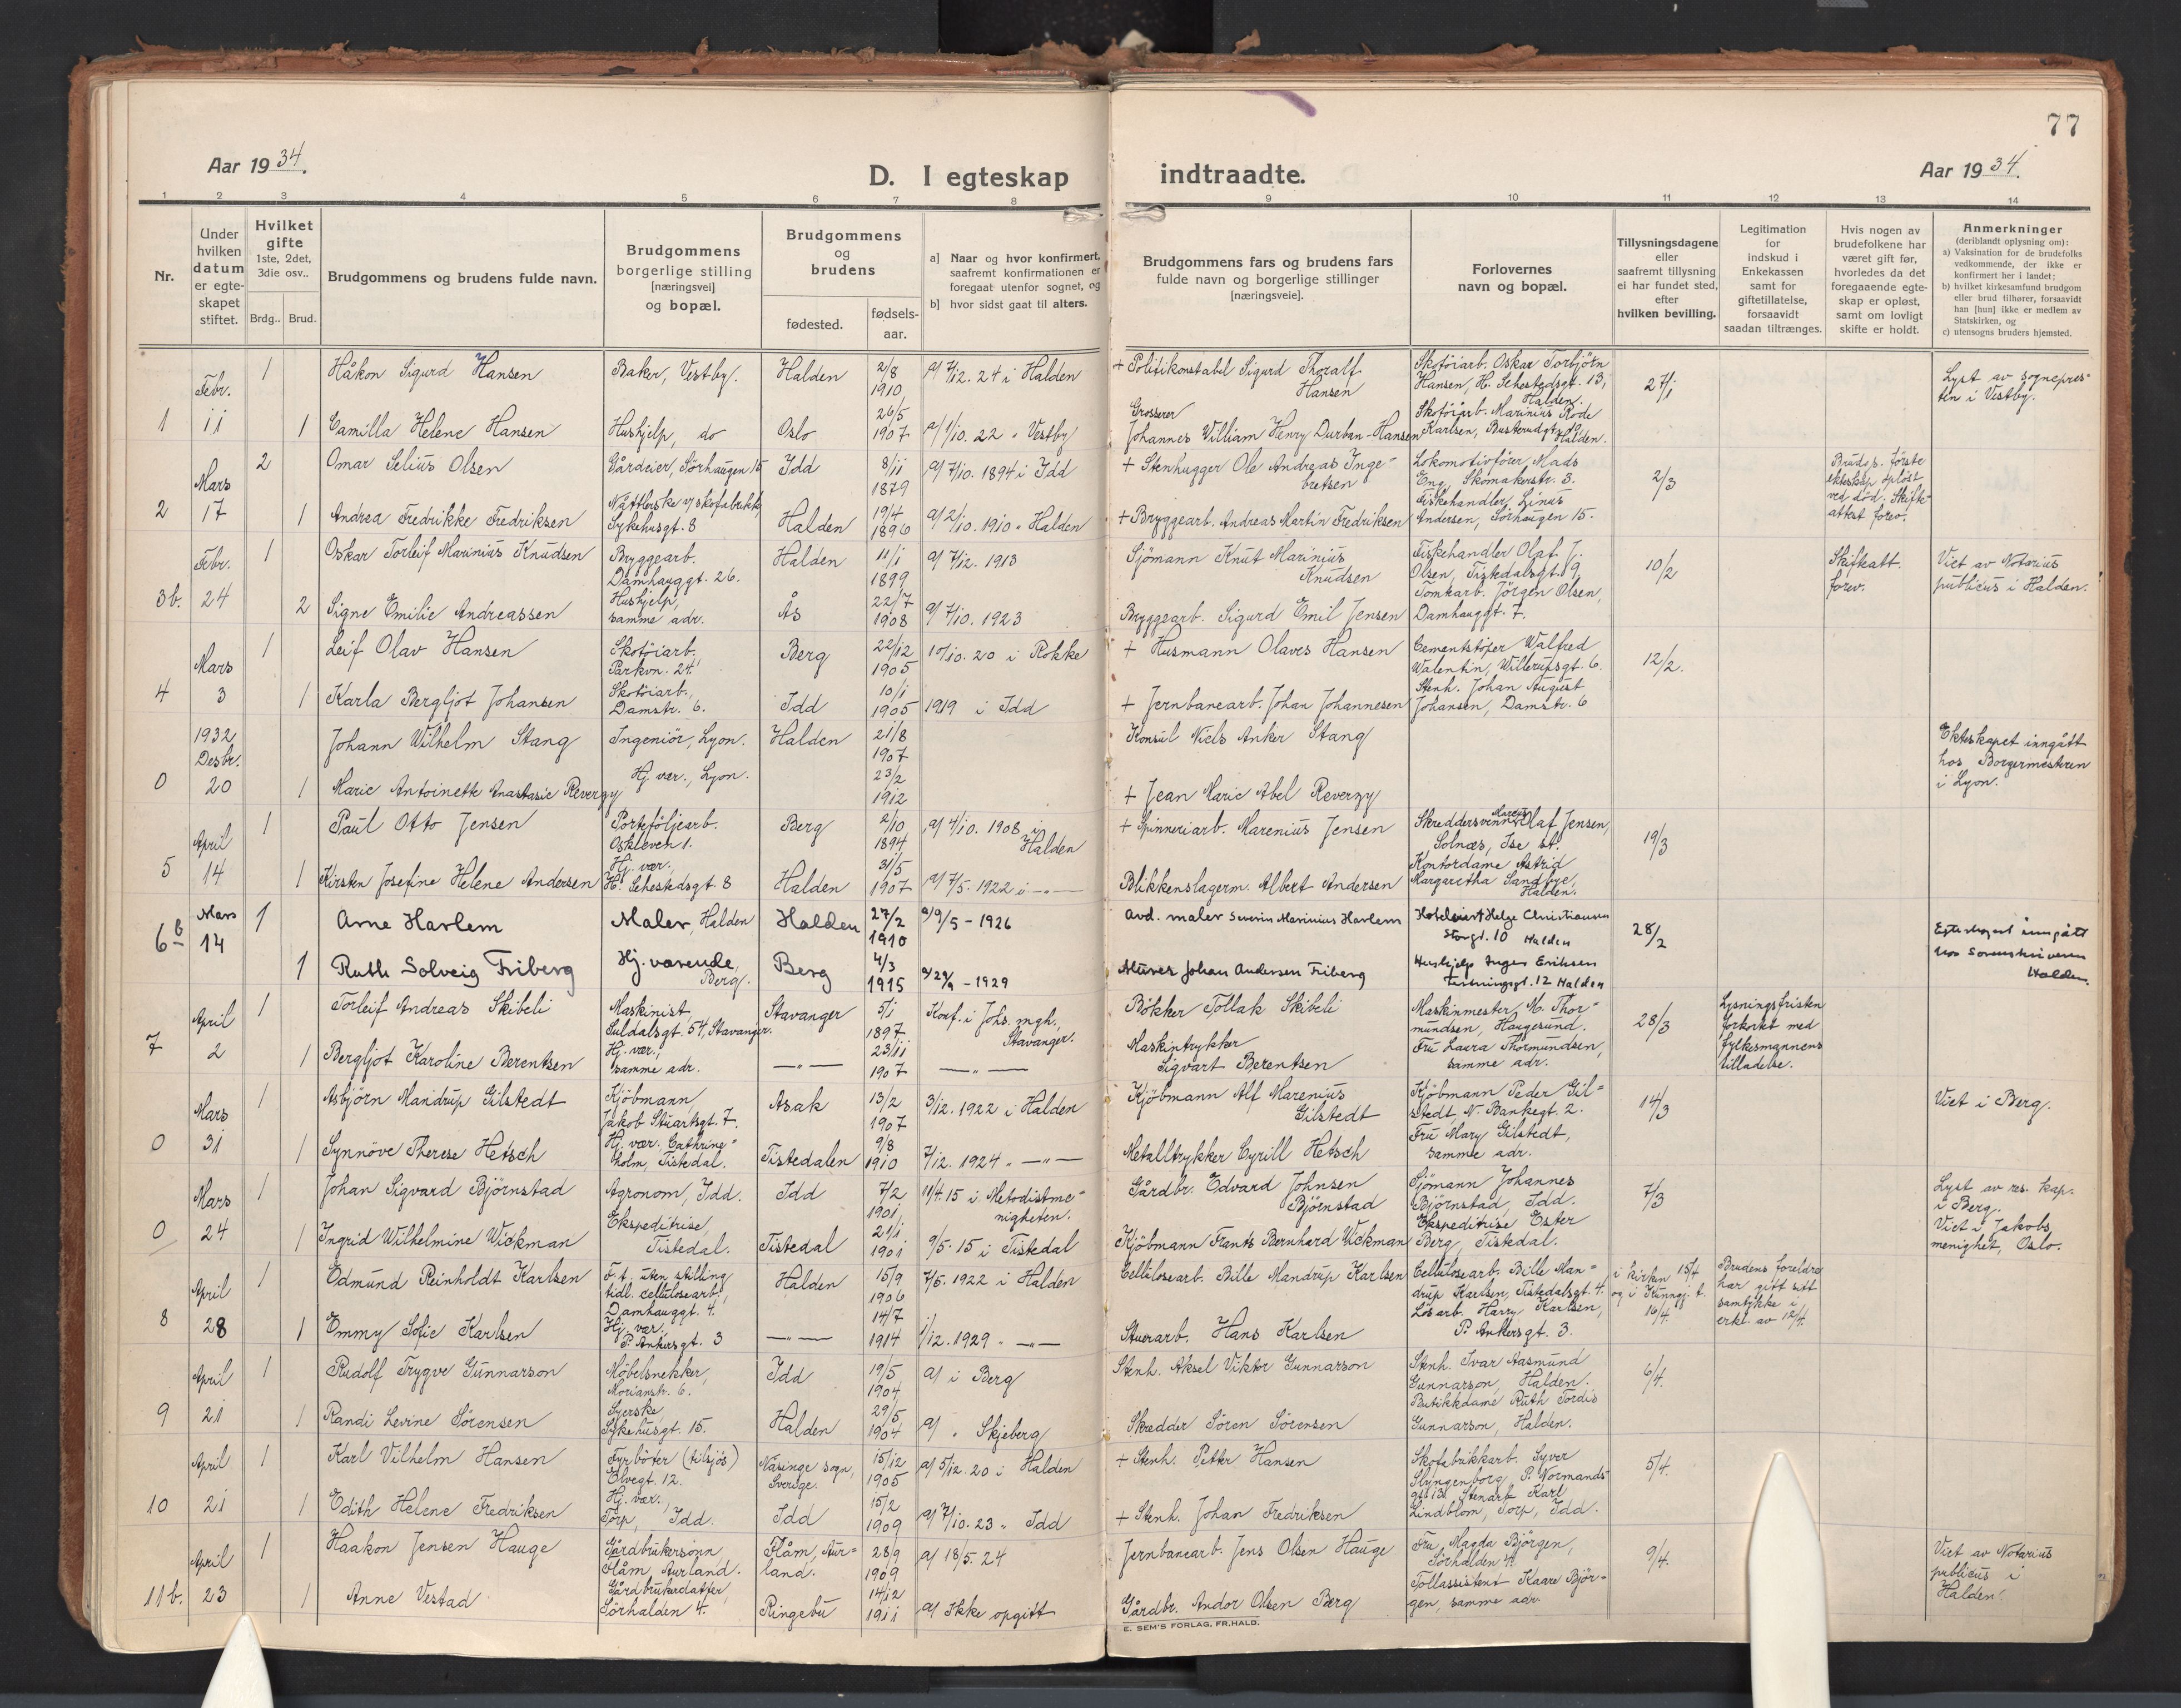 77
Aar 1934.
D. I egteskap
indtraadte.
Aar 1934.
1 2 3 4 5 6 7 8 9 10 11 12 13 14
Nr.
Under hvilken datum er egte-skapet stiftet.
Hvilket gifte
1ste, 2det, 3die osv..
Brdg.. Brud.
Brudgommens og brudens fulde navn.
Brudgommens borgerlige stilling [næringsvei] og bopæl.
Brudgommens og brudens
fødested.
fødsels-aar.
a] Naar og hvor konfirmert, saafremt konfirmationen er foregaat utenfor sognet, og
b] hvor sidst gaat til alters.
Brudgommens fars og brudens fars fulde navn og borgerlige stillinger [næringsveie].
Forlovernes navn og bopæl.
Tillysningsdagene eller saafremt tillysning ei har fundet sted, efter hvilken bevilling.
Legitimation for indskud i Enkekassen samt for giftetillatelse, forsaavidt saadan tiltrænges.
Hvis nogen av brudefolkene har været gift før, hvorledes da det foregaaende egte-skap er opløst, samt om lovligt skifte er holdt.
Anmerkninger
(deriblandt oplysning om):
a) Vaksination for de brudefolks vedkommende, der ikke er konfirmert her i landet;
b) hvilket kirkesamfund brudgom eller brud tilhører, forsaavidt han [hun] ikke er medlem av Statskirken, og
c) utensogns bruders hjemsted.
Febr. 1 Håkon Sigurd Hansen Baker, Vestby. Halden 2/8 1910 a) 7/12. 24 i Halden + Politikonstabel Sigurd Thoralf Hansen Skotöiarb. Oskar Torbjörn Hansen, H. Sehestedsgt. 13, Halden. 27/1 Lyst av sognepres-ten i Vestby.
1 11 1 Camilla Helene Hansen Hushjelp, do Oslo 26/5 1907 a) 1/10. 22 " Vestby Grosserer Johannes William Henry Durban-Hansen Skotöiarb. Marinius Rode Karlsen, Busterudgt. 19, Halden.
Mars 2 Omar Selius Olsen Gårdeier, Sörhaugen 15 Idd 8/11 1879 a) 7/10. 1894 i Idd + Stenhugger Ole Andreas Inge-bretsen Lokomotivförer Mads Eng, Skomakerstr. 3. 2/3 Brudg. förste ekteskap oplöst ved död. Skifte-attest forev.
2 17 1 Andrea Fredrikke Fredriksen Nåtlerske v/skofabrikk, Sykehusgt. 8 Halden 19/4 1896 a) 2/10. 1910 " Halden + Bryggearb. Andreas Martin Fredriksen Fiskehandler Linus Andersen, Sörhaugen 15.
Febr. 1 Oskar Torleif Marinius Knudsen Bryggearb. Damhauggt. 26. Halden 11/1 1899 a) 7/12. 1913 Sjömann Knut Marinius Knudsen Fiskehandler Olaf J. Olsen, Tistedalsgt. 9, 10/2 Skifteatt. forev. Viet av Notarius publicus i Halden.
3b. 24 2 Signe Emilie Andreassen Hushjelp, samme adr. Ås 22/7 1908 a) 7/10. 1923 Bryggearb. Sigurd Emil Jensen Tomtarb. Jörgen Olsen, Damhauggt. 7.
Mars 1 Leif Olav Hansen Skotöiarb. Parkvn. 24. Berg 22/12 1905 10/10. 20 i Rokke + Husmann Olaves Hansen Cementstöper Walfred Walentin, Willerupsgt. 6. 12/2.
4 3 1 Karla Bergljot Johansen Skotöiarb., Damstr. 6. Idd 10/1 1905 1919 i Idd + Jernbanearb. Johan Johannesen Stenh. Johan August Johansen, Damstr. 6
1932 Desbr. Johann Wilhelm Stang Ingeniör, Lyon. Halden 21/8 1907 Konsul Niels Anker Stang Ekteskapet inngått hos Borgermesteren i Lyon.
0 20 1 Marie Antoinette Anastasie Reverzy Hj. vær., Lyon. 23/2 1912 + Jean Marie Abel Reverzy
April 1 Paul Otto Jensen Porteföljearb. Oskleven 1. Berg 2/10 1894 a) 4/10. 1908 i Halden + Spinneriarb. Marenius Jensen Skreddersvenn Marcus Olaf Jensen, Solnæs, Ise st. 19/3
5 14 1 Kirsten Josefine Helene Andersen Hj. vær. H. Sehestedsgt. 8 Halden 31/5 1907 a) 7/5. 1922 i —"— Blikkenslagerm. Albert Andersen Kontordame Astrid Margaretha Sandbye, Halden.
6b Mars 14 1 Arne Harlem Maler, Halden Halden 27/2 1910 a) 9/5 - 1926 avd. maler Severin Marinius Harlem Hotelvert Helge Christiansen Storgt. 10 Halden 28/2 Egteskapet inngått hos Sorenskriveren Halden.
1 Ruth Solveig Friberg Hj. værende, Berg. Berg 4/3 1915 a) 29/9 - 1929 Murer Johan Andersen Friberg Hushjelp Inger Eriksen Festningsgt. 12 Halden
April 1 Torleif Andreas Skibeli Maskinist, Suldalsgt. 54, Stavanger. Stavanger 5/1 1897 Konf. i Johs. mgh., Stavanger. Bökker Tollak Skibeli Maskinmester M. Thor-mundsen, Haugesund. 28/3 Lysningsfristen forkortet med fylkesmannens tilladelse.
7 2 1 Bergljot Karoline Berentsen Hj. vær., samme adr. —"— 23/11 1907 —"— Maskintrykker Sigvart Berentsen Fru Laura Thormundsen, samme adr.
Mars 1 Asbjörn Mandrup Gilstedt Kjöbmann Jakob Stuartsgt. 7. Asak 13/2 1907 3/12. 1922 i Halden Kjöbmann Alf Marenius Gilstedt Kjöbmann Peder Gil-stedt, N. Bankegt. 2. 14/3 Viet i Berg.
0 31 1 Synnöve Therese Hetsch Hj. vær. Cathrine-holm, Tistedal. Tistedalen 9/8 1910 7/12. 1924 " —"— Metalltrykker Cyrill Hetsch Fru Mary Gilstedt, samme adr.
Mars 1 Johan Sigvard Björnstad Agronom, Idd. Idd 7/2 1901 11/4. 15 i Metodistme-nigheten. Gårdbr. Edvard Johnsen Björnstad Sjömann Johannes Björnstad, Idd. 7/3 Lyst av res. kap. i Berg. Viet i Jakobs menighet, Oslo.
0 24 1 Ingrid Wilhelmine Wickman Ekspeditrise, Tistedal. Tistedal 21/1 1901 9/5. 15 i Tistedal Kjöbmann Frants Bernhard Wickman Ekspeditrise Ester Berg, Tistedal.
April 1 Edmund Reinholdt Karlsen F. t. uten stilling, tidl. cellulosearb., Damhauggt. 4. Halden 15/9 1906 7/5. 1922 i Halden Cellulosearb. Bille Mandrup Karlsen Cellulosearb. Bille Man-drup Karlsen, Tistedalsgt. 4. i kirken 15/4 og i Kunngj. t. 16/4. Brudens foreldre har gitt sitt samtykke i erkl. av 12/4.
8 28 1 Emmy Sofie Karlsen Hj. vær., P. Ankersgt. 3 —"— 14/7 1914 1/12. 1929 " —"— Stuerarb. Hans Karlsen Lösarb. Harry Karlsen, P. Ankersgt. 3.
April 1 Rudolf Trygve Gunnarson Möbelsnekker, Morianstr. 6. Idd 19/5 1904 a) i Berg Stenh. Aksel Viktor Gunnarson Stenh. Ivar Aasmund Gunnarson, Halden. 6/4.
9 21 1 Randi Levine Sörensen Syerske, Sykehusgt. 15. Halden 29/5 1904 a) " Skjeberg Skredder Sören Sörensen Butikkdame Ruth Tordis Gunnarson, Halden.
April 1 Karl Vilhelm Hansen Fyrböter (tilsjös) Elvegt. 12. Näsinge sogn, Sverige. 15/12 1905 a) 5/12. 20 i Halden + Stenh. Petter Hansen Skofabrikkarb. Syver Slyngenborg, P. Normands-gt. 13. 5/4.
10 21 1 Edith Helene Fredriksen Hj. vær., Torp, Idd. Idd 15/2 1909 a) 7/10. 23 " Idd + Stenh. Johan Fredriksen Stenarb. Karl Lindblom, Torp, Idd.
April 1 Haakon Jensen Hauge Gårdbrukersönn, Flåm, Aurland. Flåm, Aur-land. 28/9 1909 a) 18/5. 24 Jernbanearb. Jens Olsen Hauge Fru Magda Björgen, Sörhalden 4. 9/4. Viet av Notarius publicus i Halden.
11b. 23 1 Anne Vestad Gårdbrukerdatter, Sörhalden 4. Ringebu 14/12 1911 a) Ikke opgitt Gårdbr. Andor Olsen Berg Tollassistent Kaare Björ-gen, samme adr.
E. SEM'S FORLAG, FR.HALD.